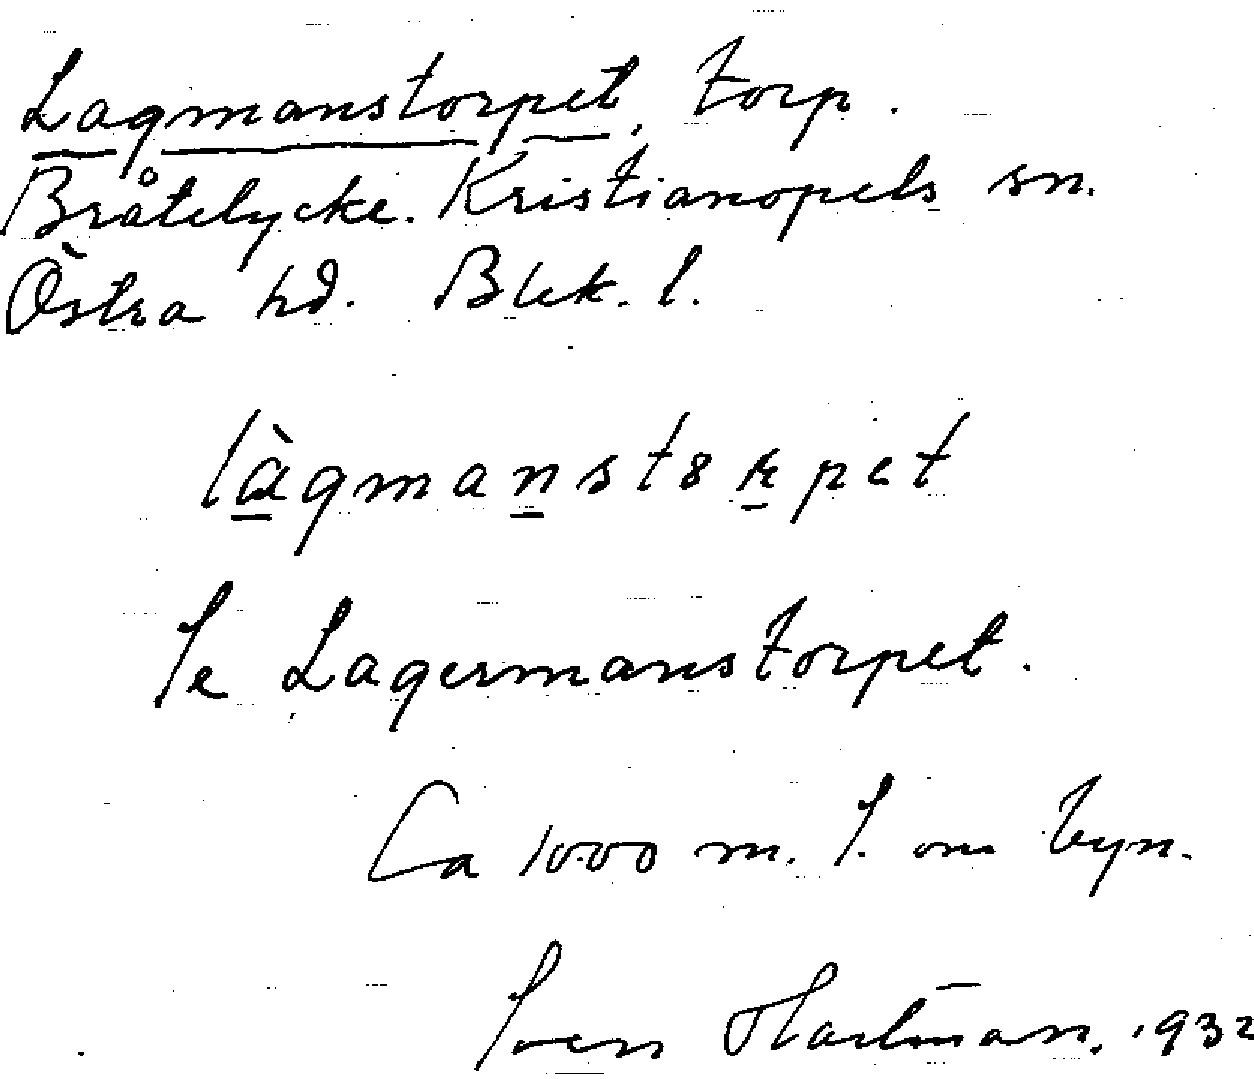 Lagmanstorpet, torp.
Bråtelycke. Kristianopels sn.
Östra hd. Blek. l.
làgmanstorpet
Se Lagermanstorpet.
Ca 1000 m. S. om byn.
Sven Hartman. 1932